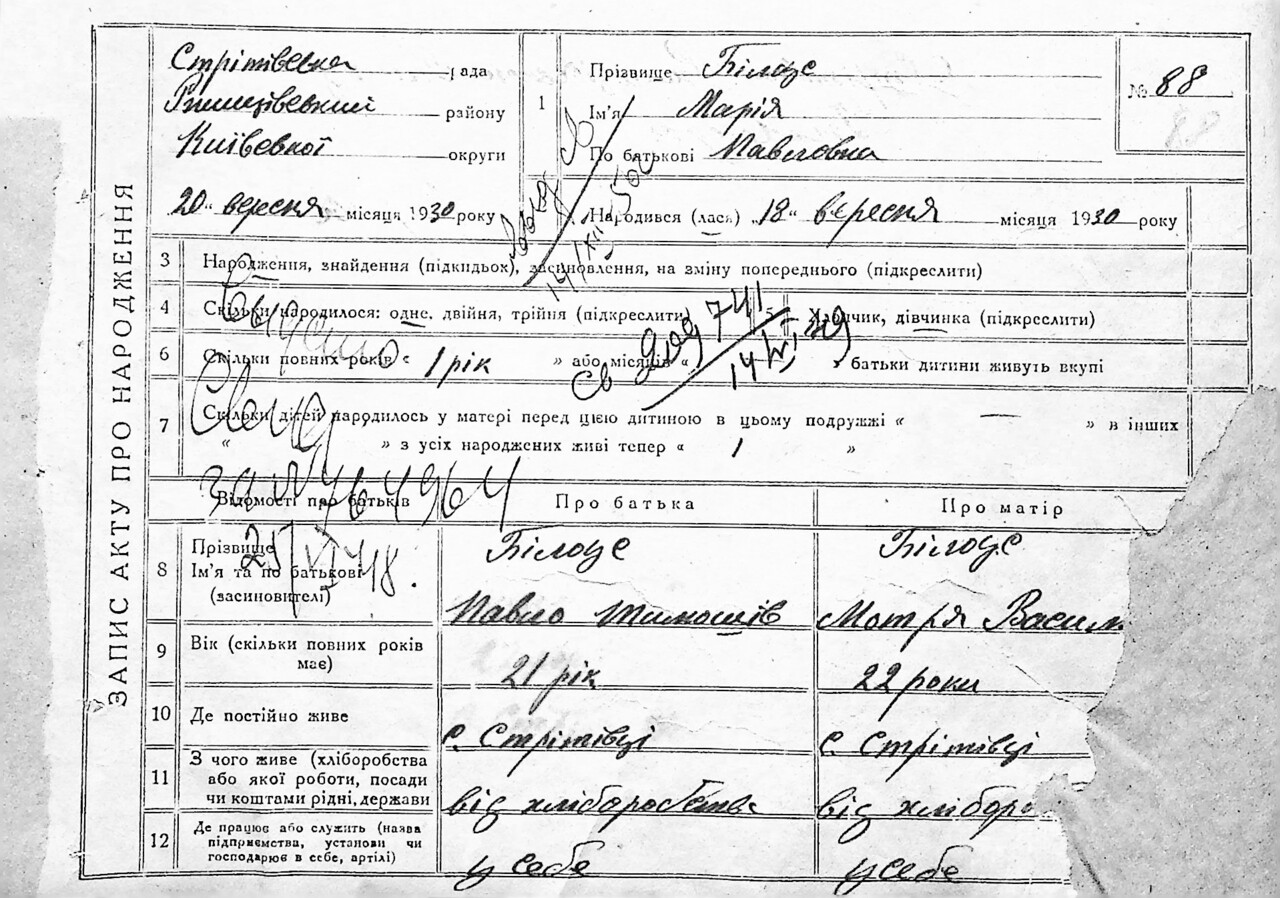 ЗАПИС АКТУ ПРО НАРОДЖЕННЯ
Стрітівська рада
району
Київської округи
"20" вересня місяця 1930 року
1 Прізвище Білоус
Ім'я Марія
По батькові Павловна
№ 88
Народився (лася) "18" вересня місяця 1930 року
3 Народження, знайдення (підкидьох), засиновлення, на зміну попереднього (підкреслити)
4 Скільки народилося: одне, двійня, трійня (підкреслити) 5 Хлопчик, дівчинка (підкреслити)
6 Скільки повних років « 1 рік » або місяців « » батьки дитини живуть вкупі
7 Скільки дітей народилось у матері перед цією дитиною в цьому подружжі « — » в інших
« » з усіх народжених живі тепер « 1 »
Відомості про батьків Про батька Про матір
за № 464964
25/VI 48.
741
8 Прізвище Білоус Білоус
Ім'я та по батькові
(засиновителі) Павло Тимошів Мотря Васил
9 Вік (скільки повних років
має) 21 рік 22 роки
10 Де постійно живе с. Стрітівці с. Стрітівці
11 З чого живе (хліборобства
або якої роботи, посади
чи коштами рідні, держави від хліборобства від хліборо
12 Де працює або служить (назва
підприємства, установи чи
господарює в себе, артілі) у себе у себе